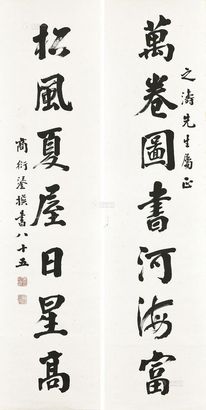 之濤先生屬正
萬卷圖書河海富
松風夏屋日星高
商衍鎏撰書八十五